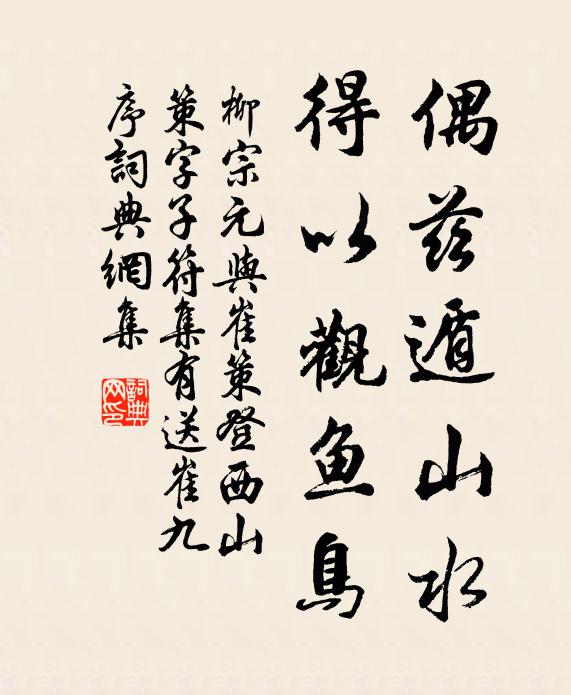 偶茲遁山水
得以觀魚鳥
柳宗元與崔策登西山
策字子符集有送崔九
序詞典網集
詞典网印